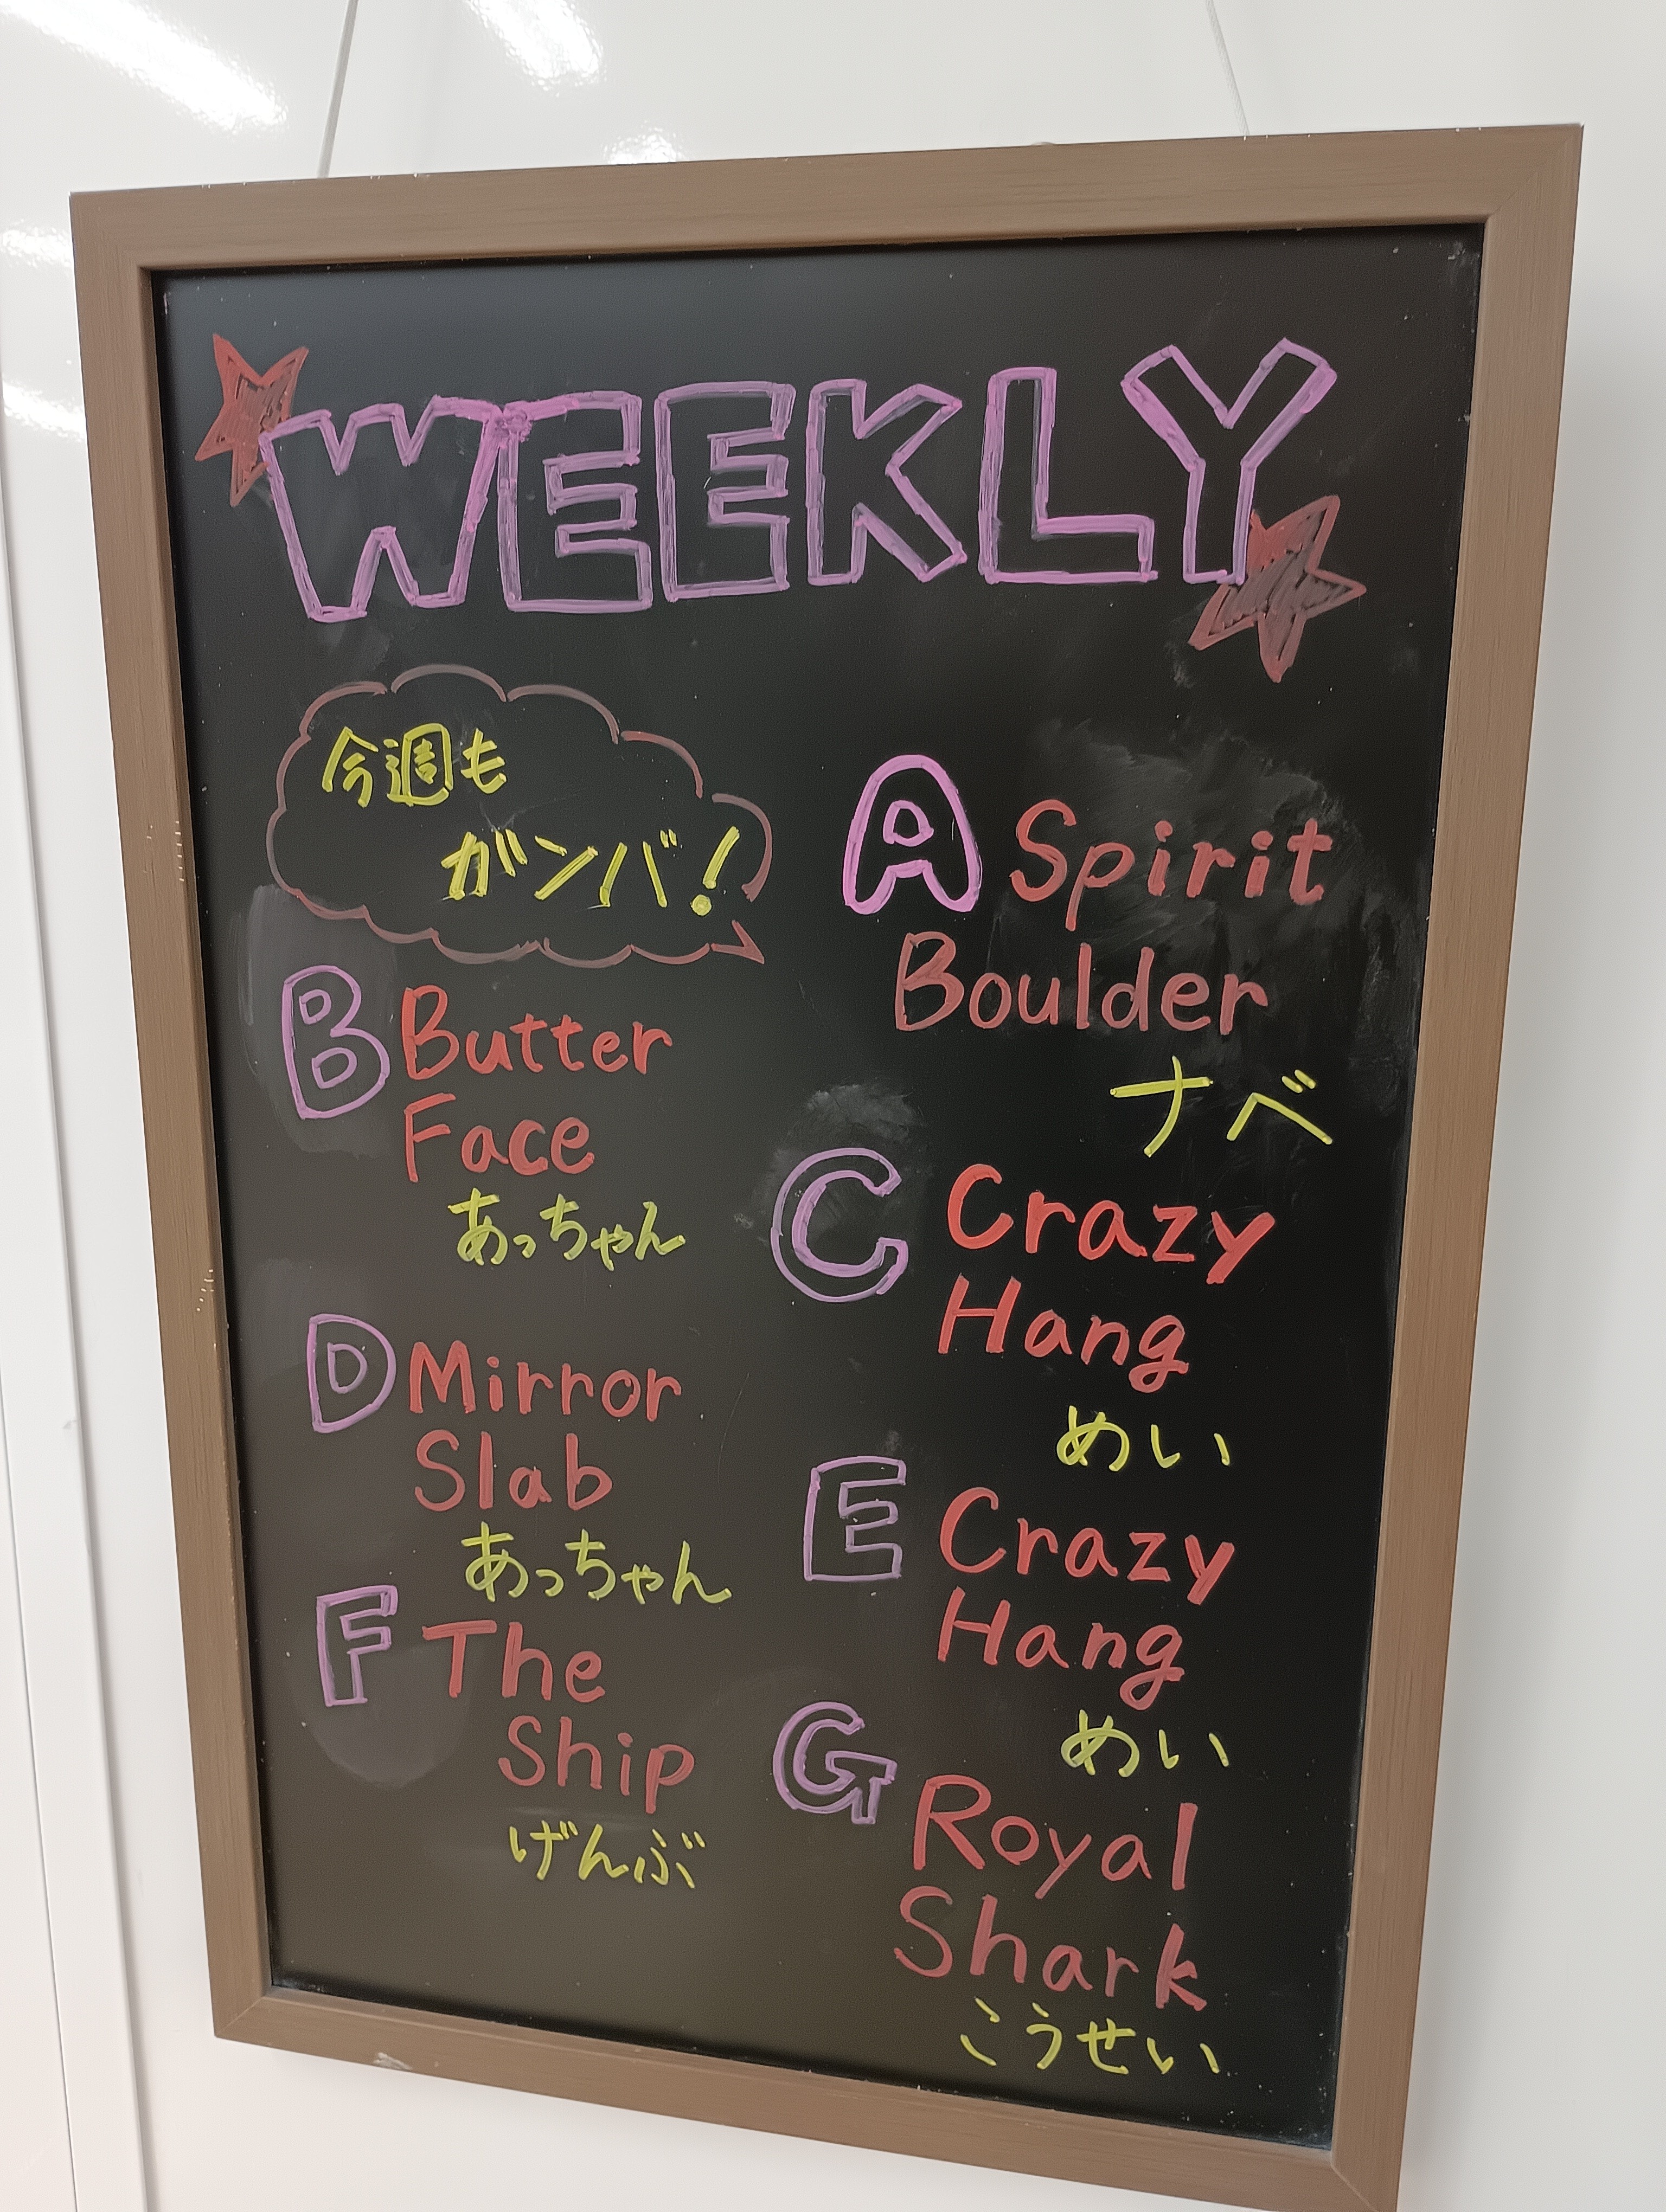 WEEKLY
今週も
ガンバ!
A Spirit
Boulder
ナベ
B Butter
Face
あっちゃん
C Crazy
Hang
めい
D Mirror
Slab
あっちゃん
E Crazy
Hang
めい
F The
Ship
げんぶ
G Royal
Shark
こうせい